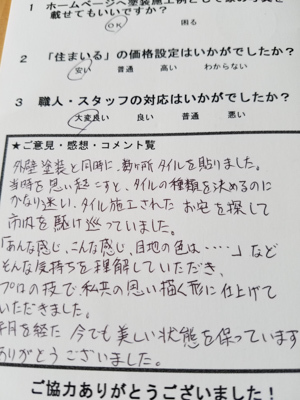 1 ホームページへ塗装施工例として
載せてもいいですか？
OK 困る
2 「住まいる」の価格設定はいかがでしたか？
安い 普通 高い わからない
3 職人・スタッフの対応はいかがでしたか？
大変良い 良い 普通 悪い
★ご意見・感想・コメント覧
外壁塗装と同時に、数ヶ所タイルを貼りました。
当時を思い起こすと、タイルの種類を決めるのに
かなり迷い、タイル施工された お宅を探して
市内を駆け巡っていました。
「あんな感じ、こんな感じ、目地の色は・・・・」など
そんな気持ちを理解していただき、
プロの技で私共の思い描く形に仕上げて
いただきました。
年月を経た 今でも美しい状態を保っています
ありがとうございました。
ご協力ありがとうございました！